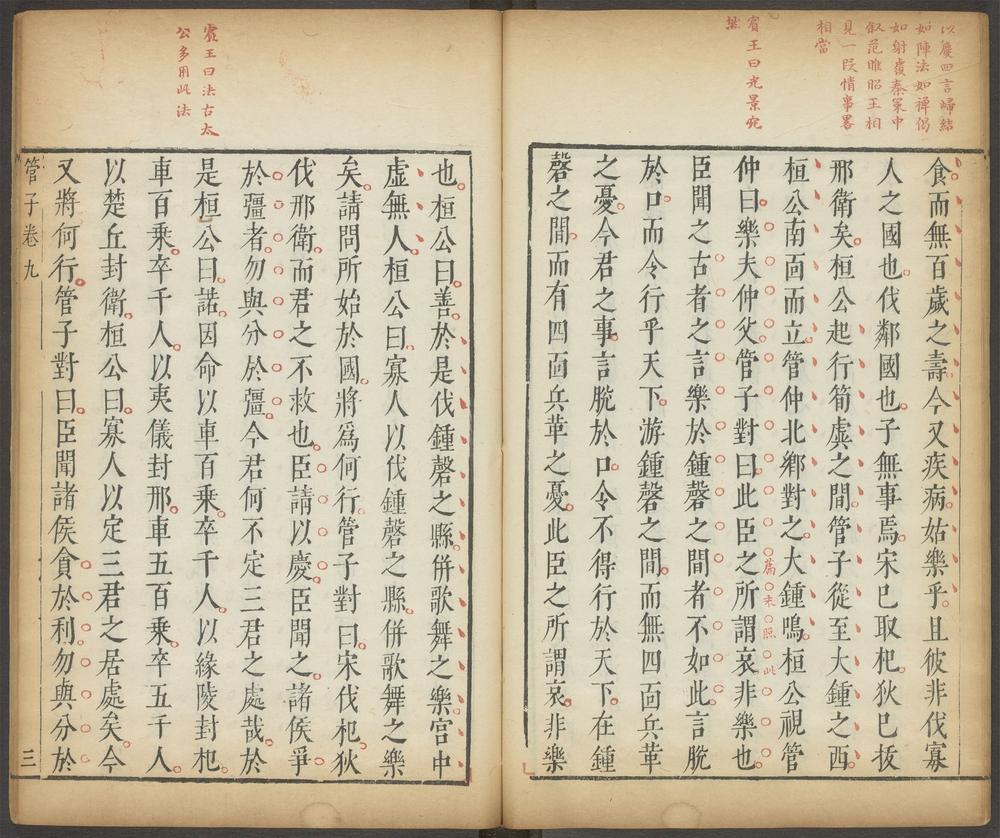 以慶四言歸結
如陣法如禪偈
如射覆秦策中
叙范雎昭王相
見一段情事畧
相當
賓王曰光景宛
然
食而無百歲之壽今又疾病姑樂乎且彼非伐寡
人之國也伐鄰國也子無事焉宋已取杞狄已拔
邢衛矣桓公起行筍虡之間管子從至大鍾之西
桓公南面而立管仲北鄉對之大鍾鳴桓公視管
仲曰樂夫仲父管子對曰此臣之所謂哀非樂也
篇末照此
臣聞之古者之言樂於鍾磬之間者不如此言脫
於口而令行乎天下游鍾磬之間而無四面兵革
之憂今君之事言脫於口令不得行於天下在鍾
磬之間而有四面兵革之憂此臣之所謂哀非樂
賓王曰法古太
公多用此法
也桓公曰善於是伐鍾磬之縣併歌舞之樂宮中
虛無人桓公曰寡人以伐鍾磬之縣併歌舞之樂
矣請問所始於國將爲何行管子對曰宋伐杞狄
伐邢衛而君之不救也臣請以慶臣聞之諸侯爭
於彊者勿與分於彊今君何不定三君之處哉於
是桓公曰諾因命以車百乘卒千人以緣陵封杞
車百乘卒千人以夷儀封邢車五百乘卒五千人
以楚丘封衛桓公曰寡人以定三君之居處矣今
又將何行管子對曰臣聞諸侯貪於利勿與分於
管子卷九 三